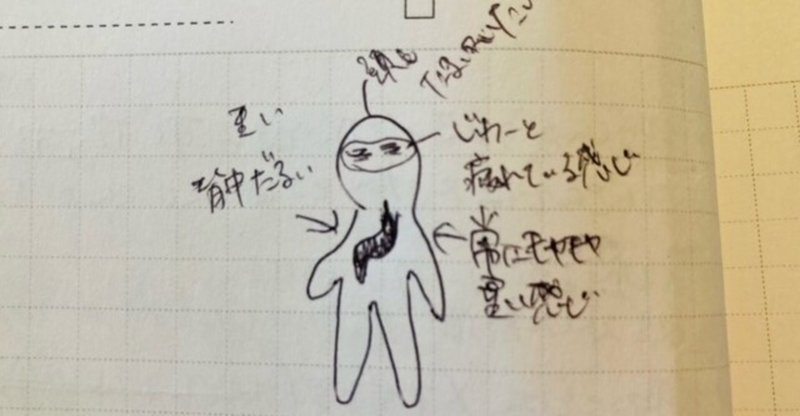 頭も
重い
背中だるい
じわーと
疲れている感じ
常にモヤモヤ
重い感じ